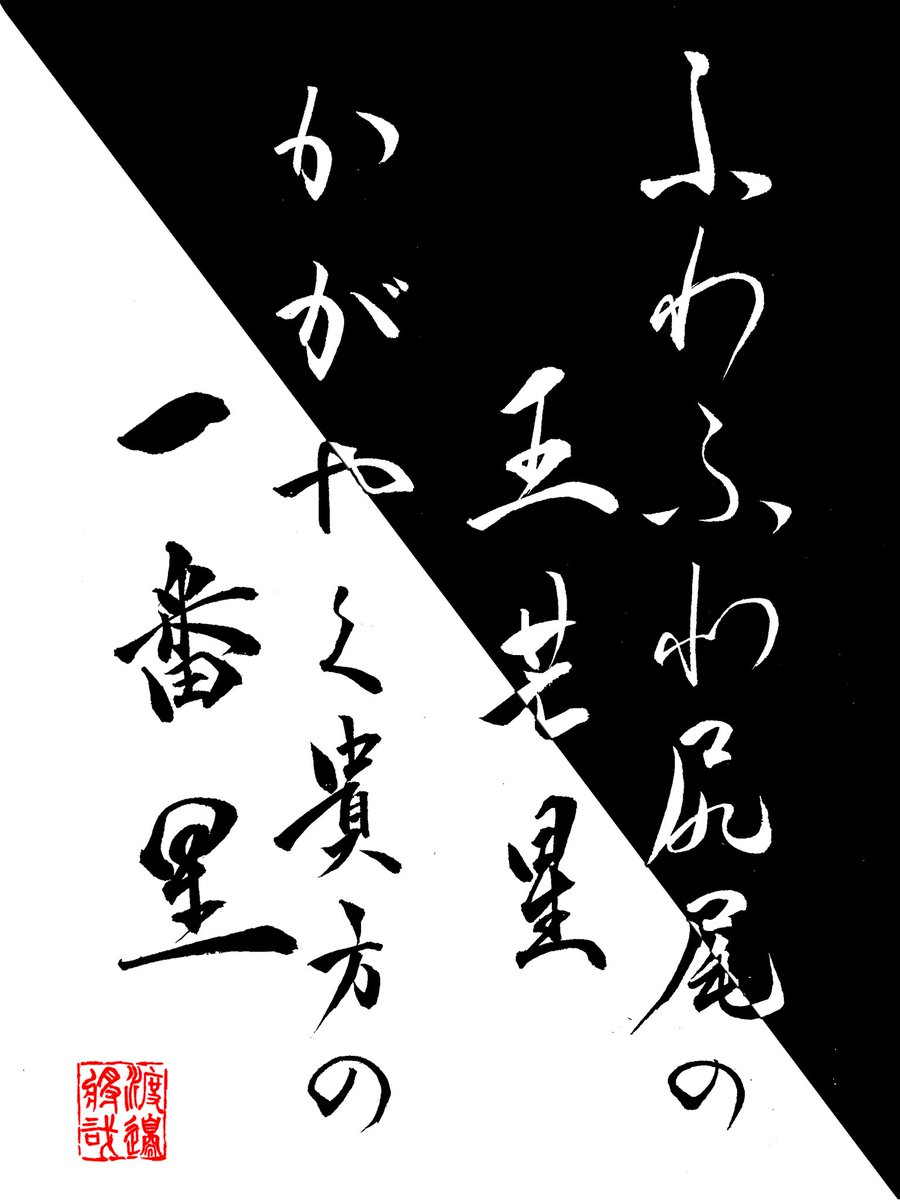 ふわふわ尻尾の
五芒星
かがやく貴方の
一番星
渡邊